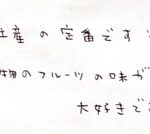 土産の定番です
物のフルーツの味が
大好きで